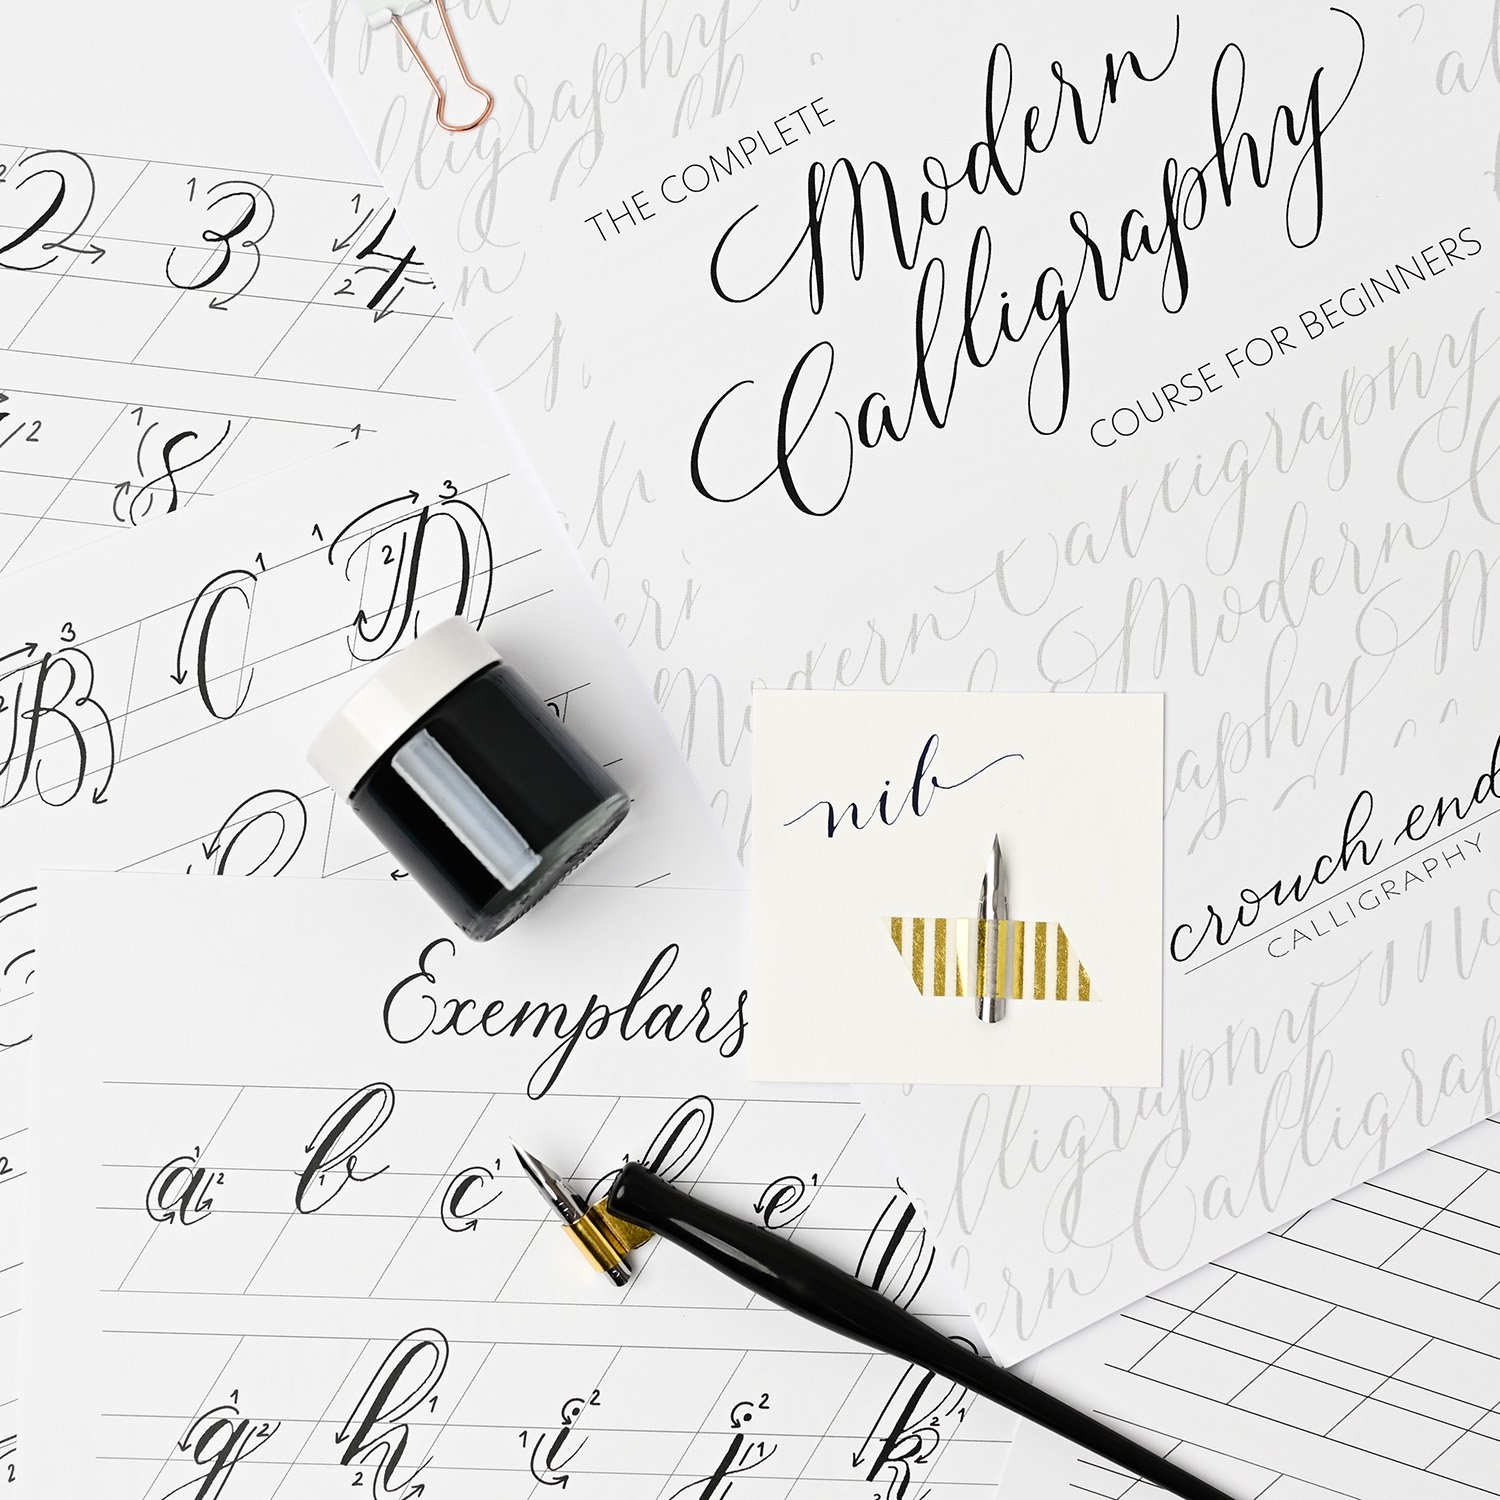 THE COMPLETE
Modern
Calligraphy
COURSE FOR BEGINNERS
2 3 4
B C D
nib
crouch end
CALLIGRAPHY
Exemplars
a b c d e f
g h i j k